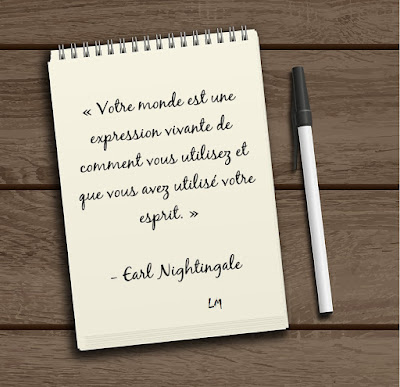 « Votre monde est une
expression vivante de
comment vous utilisez et
que vous avez utilisé votre
esprit. »
- Earl Nightingale
LM